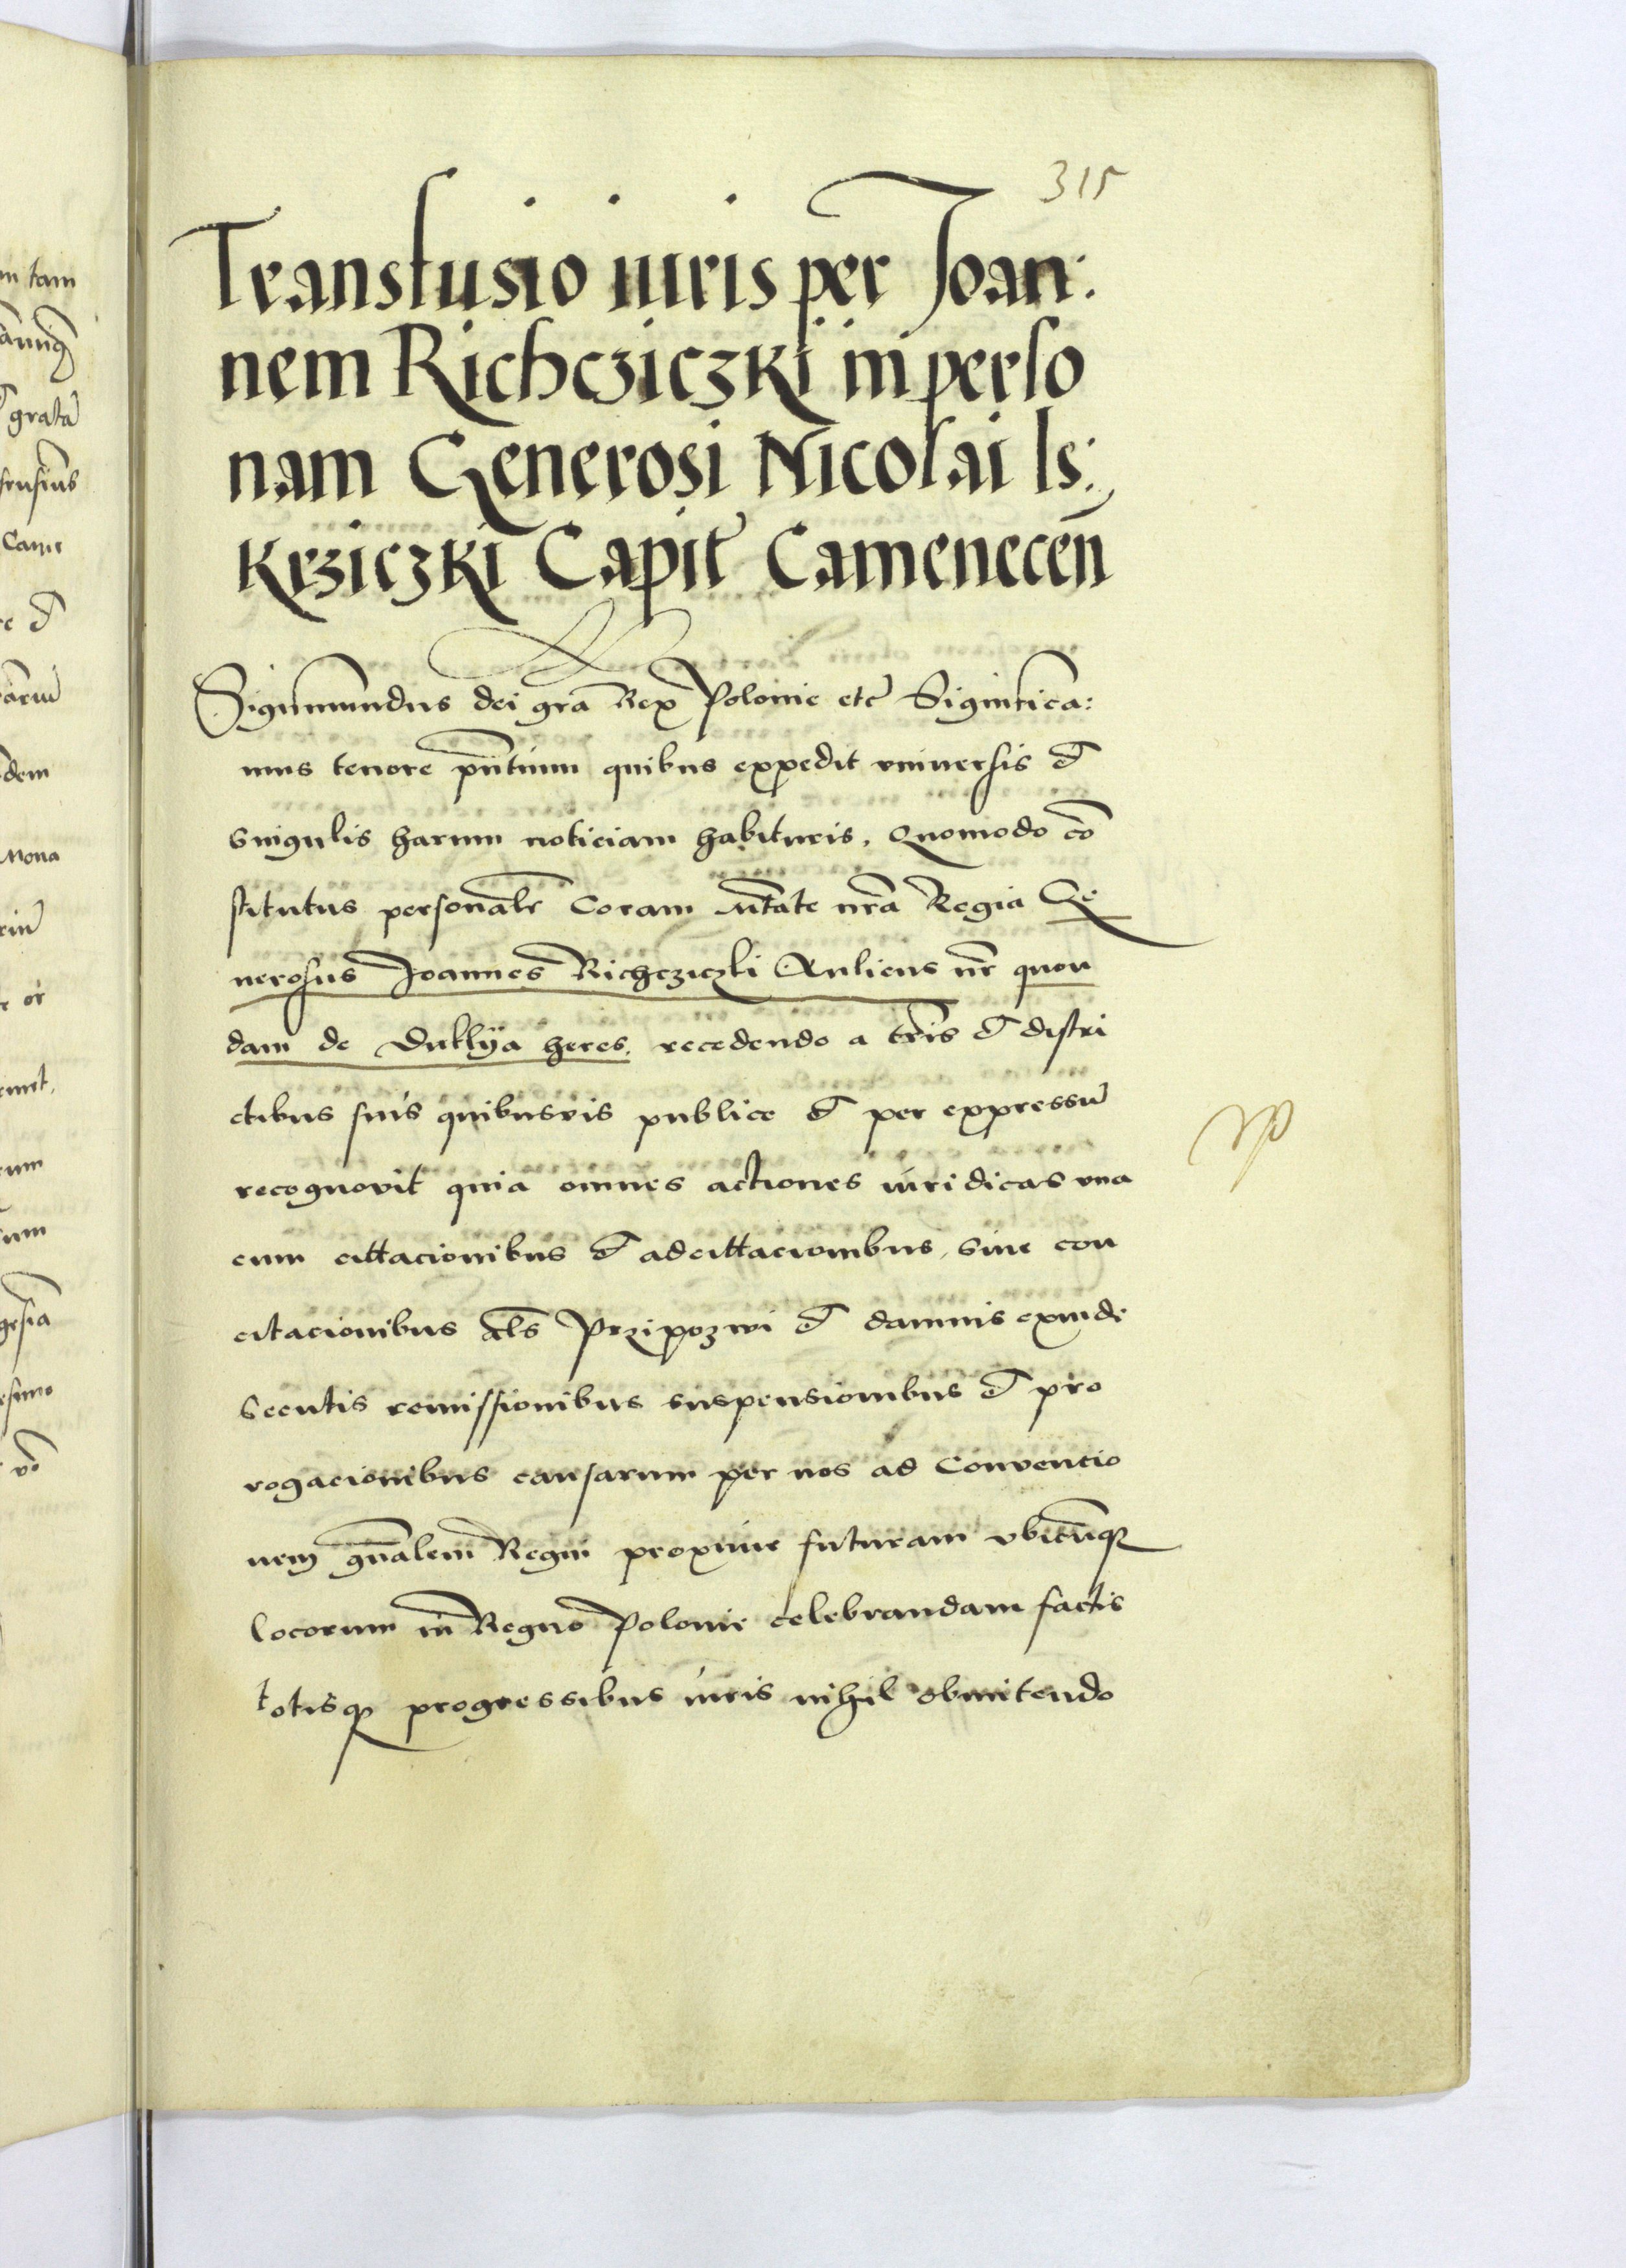 315
Transfusio iuris per Joan:
nem Richcziczki in perso
nam Generosi Nicolai Is:
krziczki Capit̃ Camenecen̄
Sigismundus dei gr̄a Rex Polonie etc̃ Significa:
mus tenore pn̄tium quibus expedit vniuersis et
singulis harum noticiam habituris, Quomodo cō
stitutus personalr̄ Coram Mtāte nr̄a Regia Ge
nerosus Joannes Richcziczki Aulicus nr̄ quon
dam de Duklÿa heres, recedendo a tr̄is et distri
ctibus suis quibusvis publice et per expressū
recognovit quia omnes actiones iuridicas vna
cum cittacionibus et adcittacionibus, siue con
citacionibus als̄ Przipozwi et damnis exinde
secutis remissionibus suspensionibus et pro
rogacionibus causarum per nos ad Conventio
nem gn̄alem Regni proxime futuram vbicūq3
locorum in Regno Polonie celebrandam factis
totisq3 progressibus iuris nihil obmitendo